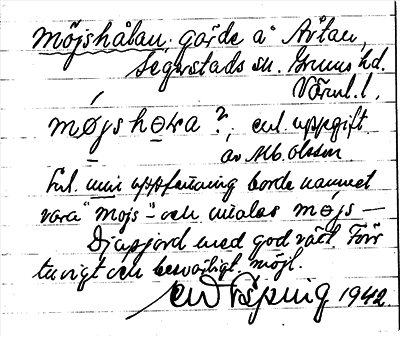 Möjshålan. gärde å Årtan,
Segerstads sn. Grums hd.
Värml. l.
møjshɵɫa ?, enl. uppgift
av Mb. Olsson
Enl. min uppfattning borde namnet
vara "mojs"- och uttalas mɵjs —
Djupjord med god växt. Förr
tuvigt och besvärligt. möjl.
1942.